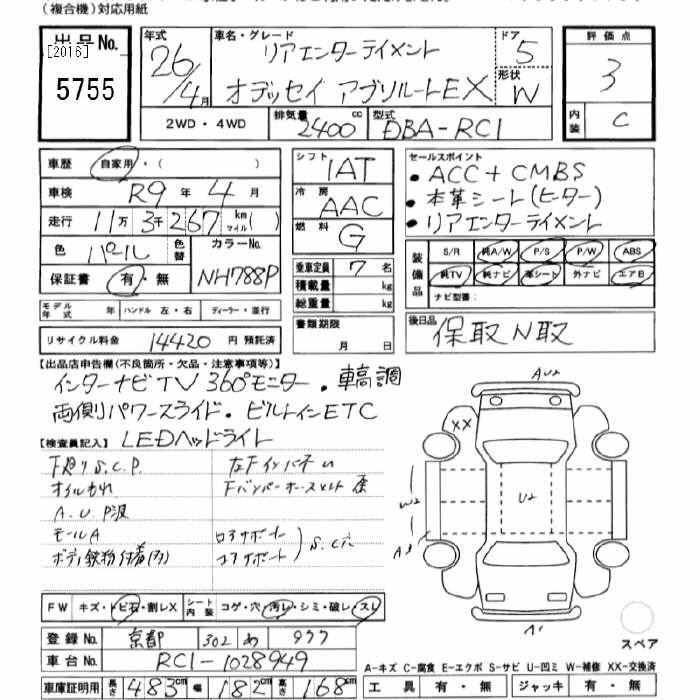 (複合機)対応用紙
出品No.
[2016]
5755
年式
26/4月
車名・グレード
リアエンターテイメント
オデッセイ アブソルートEX
ドア
5
形状
W
評価点
3
内装
C
2WD・4WD
排気量
2400cc
型式
DBA-RC1
車歴 自家用・( )
車検 R9年4月
走行 11万3千267km マイル( )
色 パール 色替 カラーNo.
保証書 有・無 NH788P
シフト 1AT
冷房 AAC
燃料 G
乗車定員 7名
積載量 kg
総重量 kg
書類期限
月 日
セールスポイント
・ACC+CMBS
・本革シート(ヒーター)
・リアエンターテイメント
装備品
S/R 純A/W P/S P/W ABS
純TV 純ナビ 革シート 外ナビ エアB
ナビ型番:
モデル年式 年 ハンドル 左・右 ディーラー・並行
リサイクル料金 14420円 預託済
後日品 保取N取
【出品店申告欄(不良箇所・欠品・注意事項等)】
インターナビTV 360°モニター・車高調
両側パワースライド・ビルトインETC
LEDヘッドライト
【検査員記入】
下廻りS.C.P.
左下インパネU
A.U.P波
モールA
ロアサポート
コアサポート
FW キズ・トビ石・割レX シート内装 コゲ・穴・汚レ・シミ・破レ・スレ
登録No. 京都 302 め 777
車台No. RC1-1028949
車庫証明用 長さ 483cm 幅 182cm 高さ 168cm
AU2
XX
W2
U2
A3
A1
スペア
A-キズ C-腐食 E-エクボ S-サビ U-凹ミ W-補修 XX-交換済
工具 有・無 ジャッキ 有・無